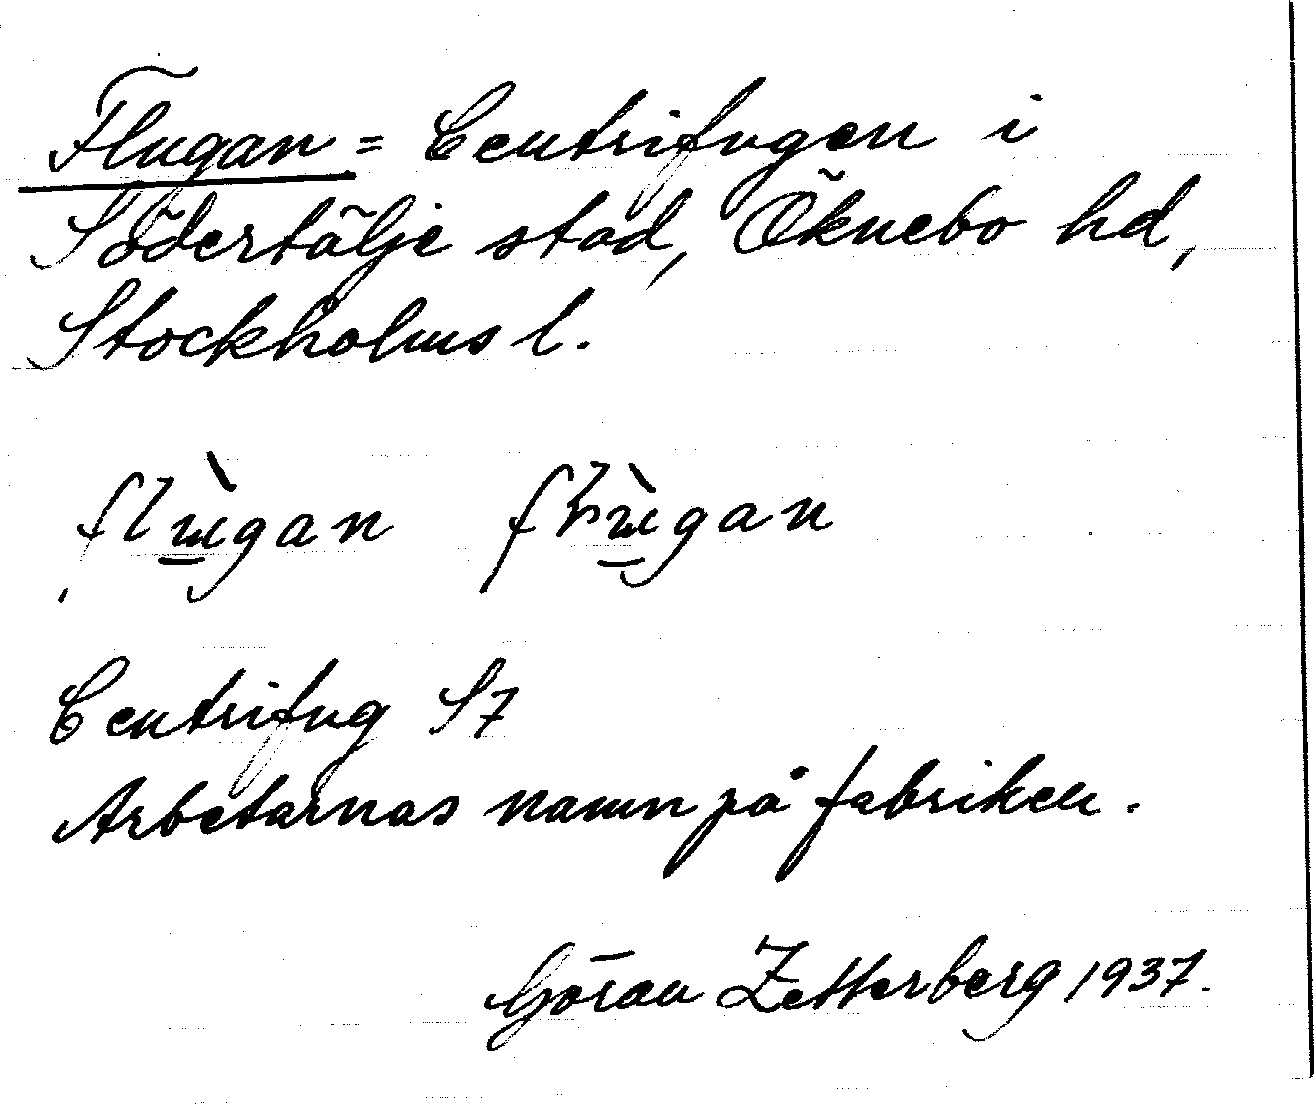 Flugan = Centrifugen i
Södertälje stad, Öknebo hd,
Stockholms l.
flùgan flùgan
Centrifug S7
Arbetarnas namn på fabriken.
Göran Zetterberg 1937.